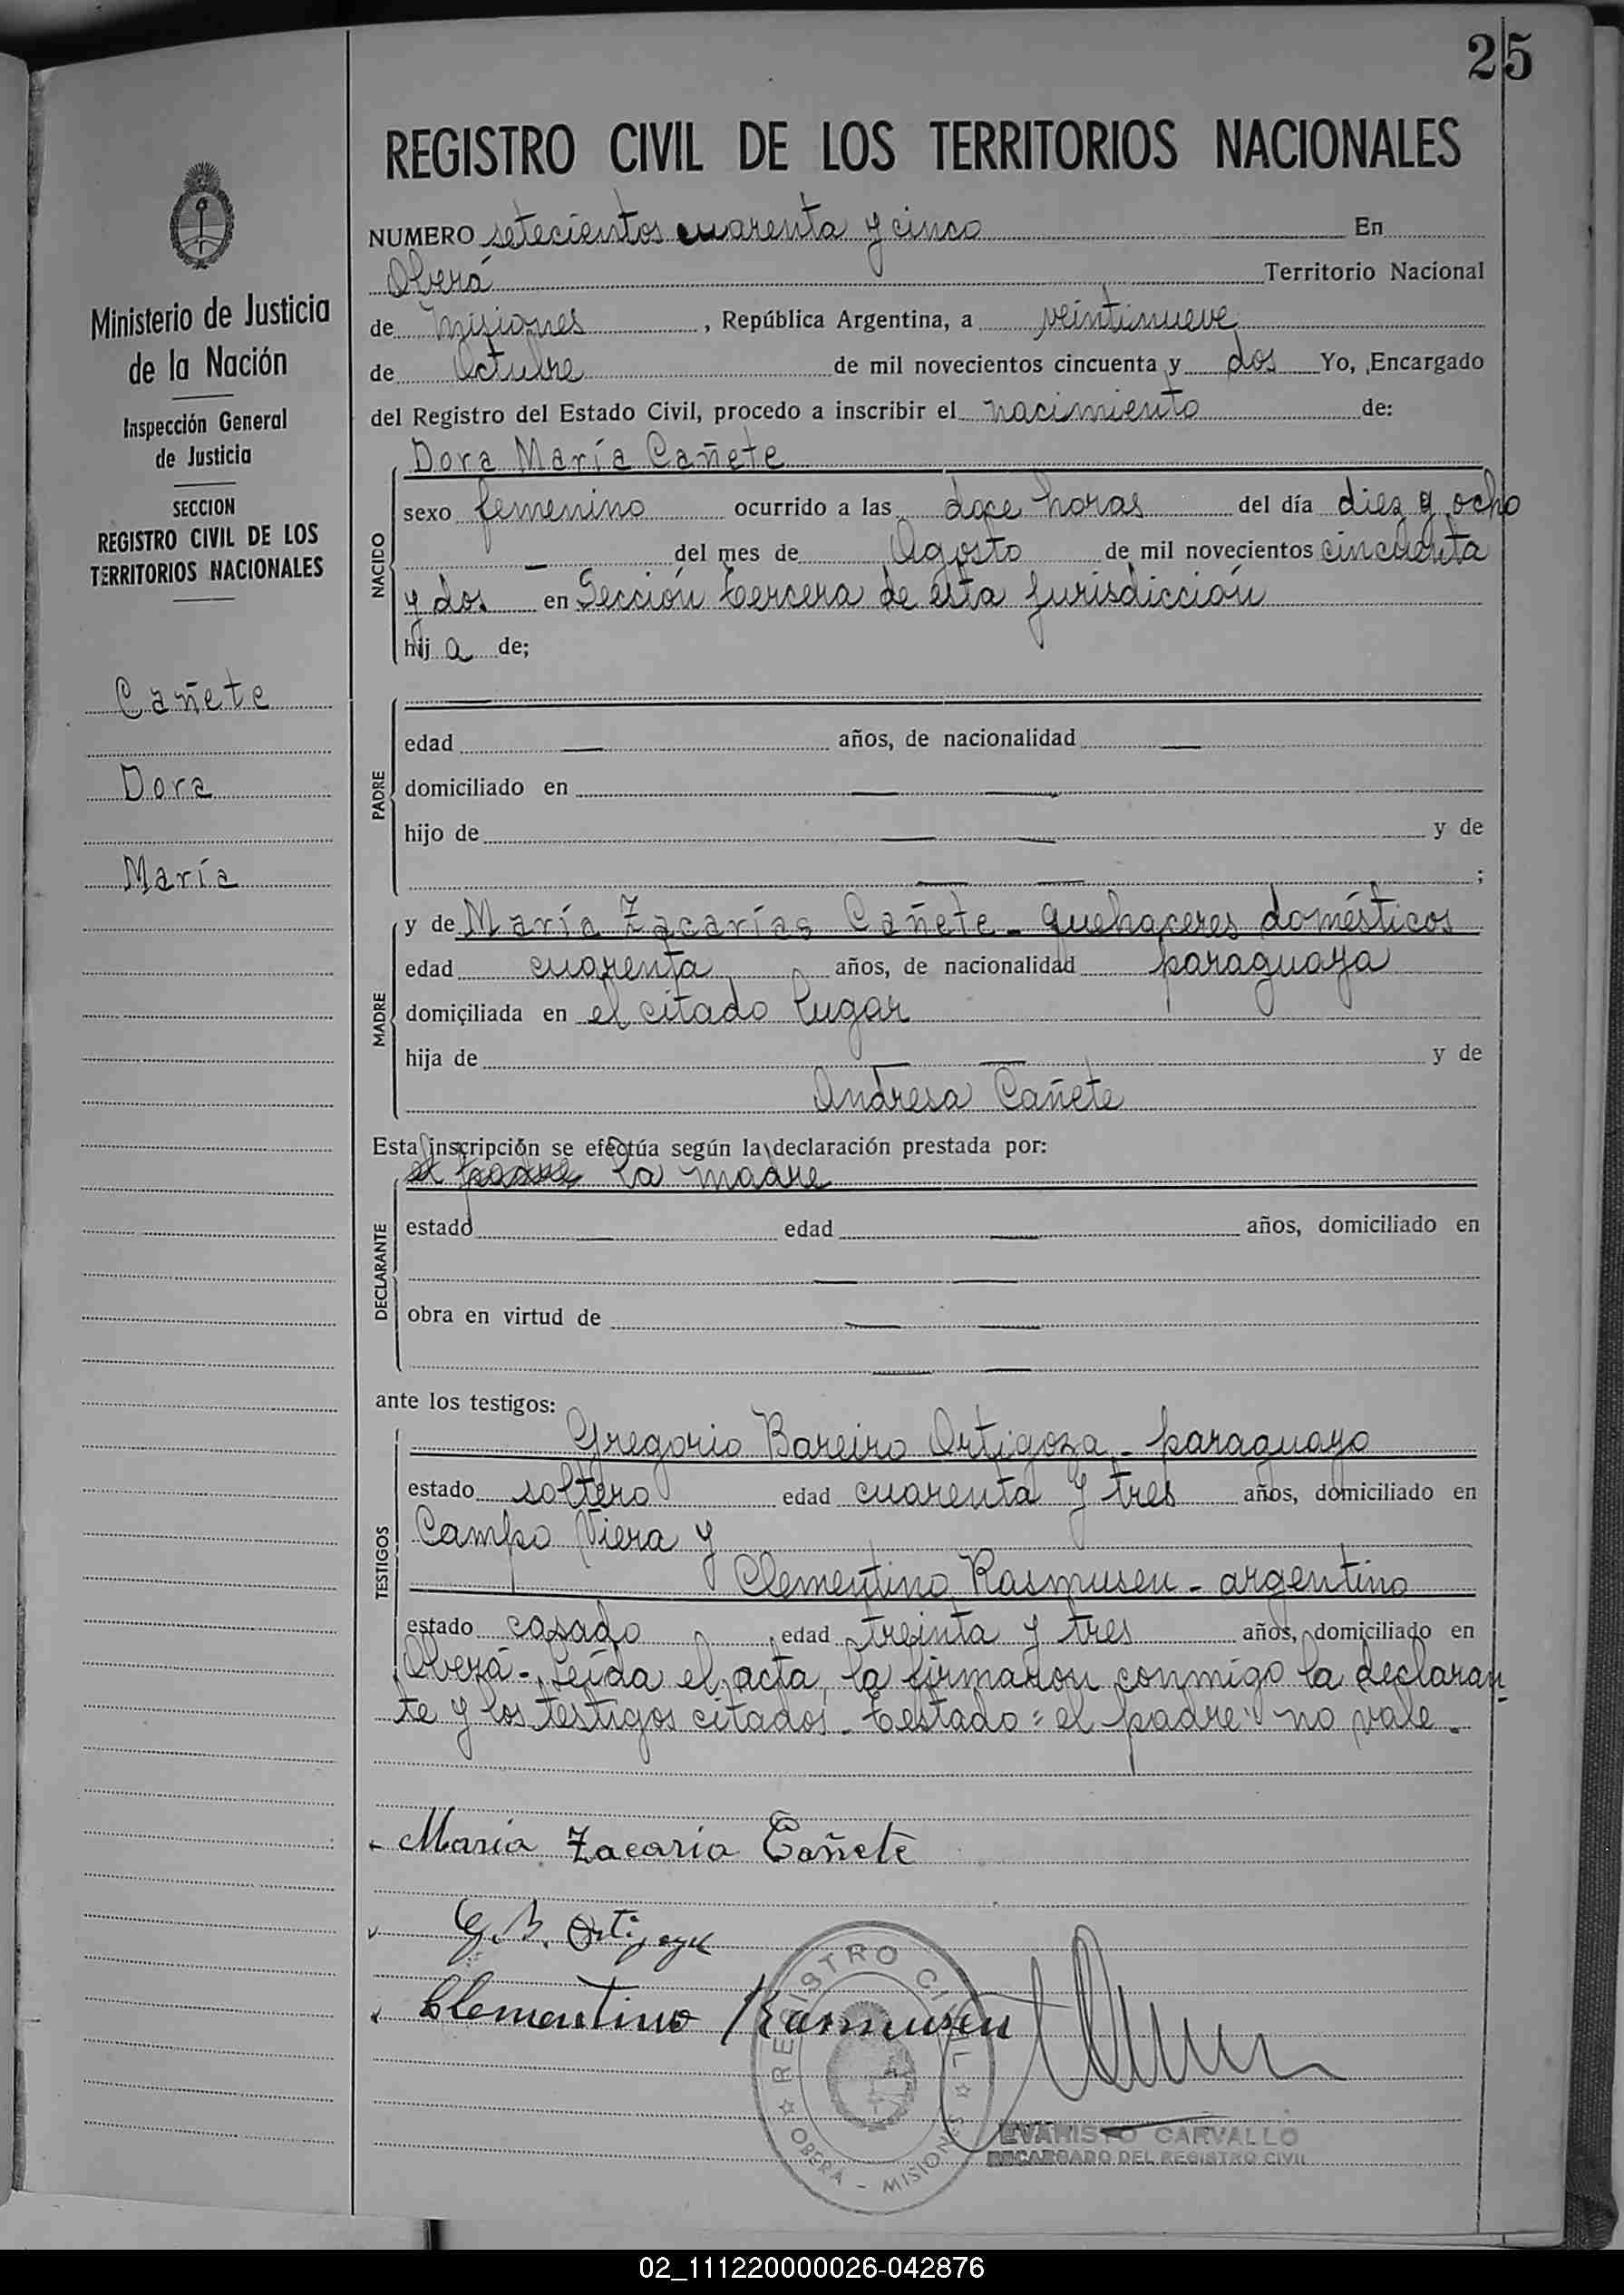 25
REGISTRO CIVIL DE LOS TERRITORIOS NACIONALES
Ministerio de Justicia
de la Nación
Inspección General
de Justicia
SECCION
REGISTRO CIVIL DE LOS
TERRITORIOS NACIONALES
Cañete
Dora
María
NUMERO setecientos cuarenta y cinco En
Oberá Territorio Nacional
de Misiones, República Argentina, a veintinueve
de Octubre de mil novecientos cincuenta y dos Yo, Encargado
del Registro del Estado Civil, procedo a inscribir el nacimiento de:
Dora María Cañete
NACIDO
sexo femenino ocurrido a las doce horas del día diez y ocho
— del mes de Agosto de mil novecientos cincuenta
y dos en Sección tercera de esta jurisdicción
hij a de;
PADRE
edad — años, de nacionalidad —
domiciliado en — —
hijo de — — y de
— — ;
MADRE
y de María Zacarías Cañete - quehaceres domésticos
edad cuarenta años, de nacionalidad paraguaya
domiciliada en el citado lugar
hija de — — y de
Andresa Cañete
Esta inscripción se efectúa según la declaración prestada por:
el padre la madre
DECLARANTE
estado — edad — años, domiciliado en
— —
obra en virtud de — —
— —
ante los testigos:
TESTIGOS
Gregorio Bareiro Ortigoza - paraguayo
estado soltero edad cuarenta y tres años, domiciliado en
Campo Viera y
Clementino Rasmusen - argentino
estado casado edad treinta y tres años, domiciliado en
Oberá - Leída el acta, la firmaron conmigo la declaran-
te y los testigos citados - Testado = el padre: no vale -
María Zacaria Cañete
G. B. Ortigoza
Clementino Rasmusen
REGISTRO CIVIL
OBERA - MISIONES
EVARISTO CARVALLO
ENCARGADO DEL REGISTRO CIVIL
02_111220000026-042876